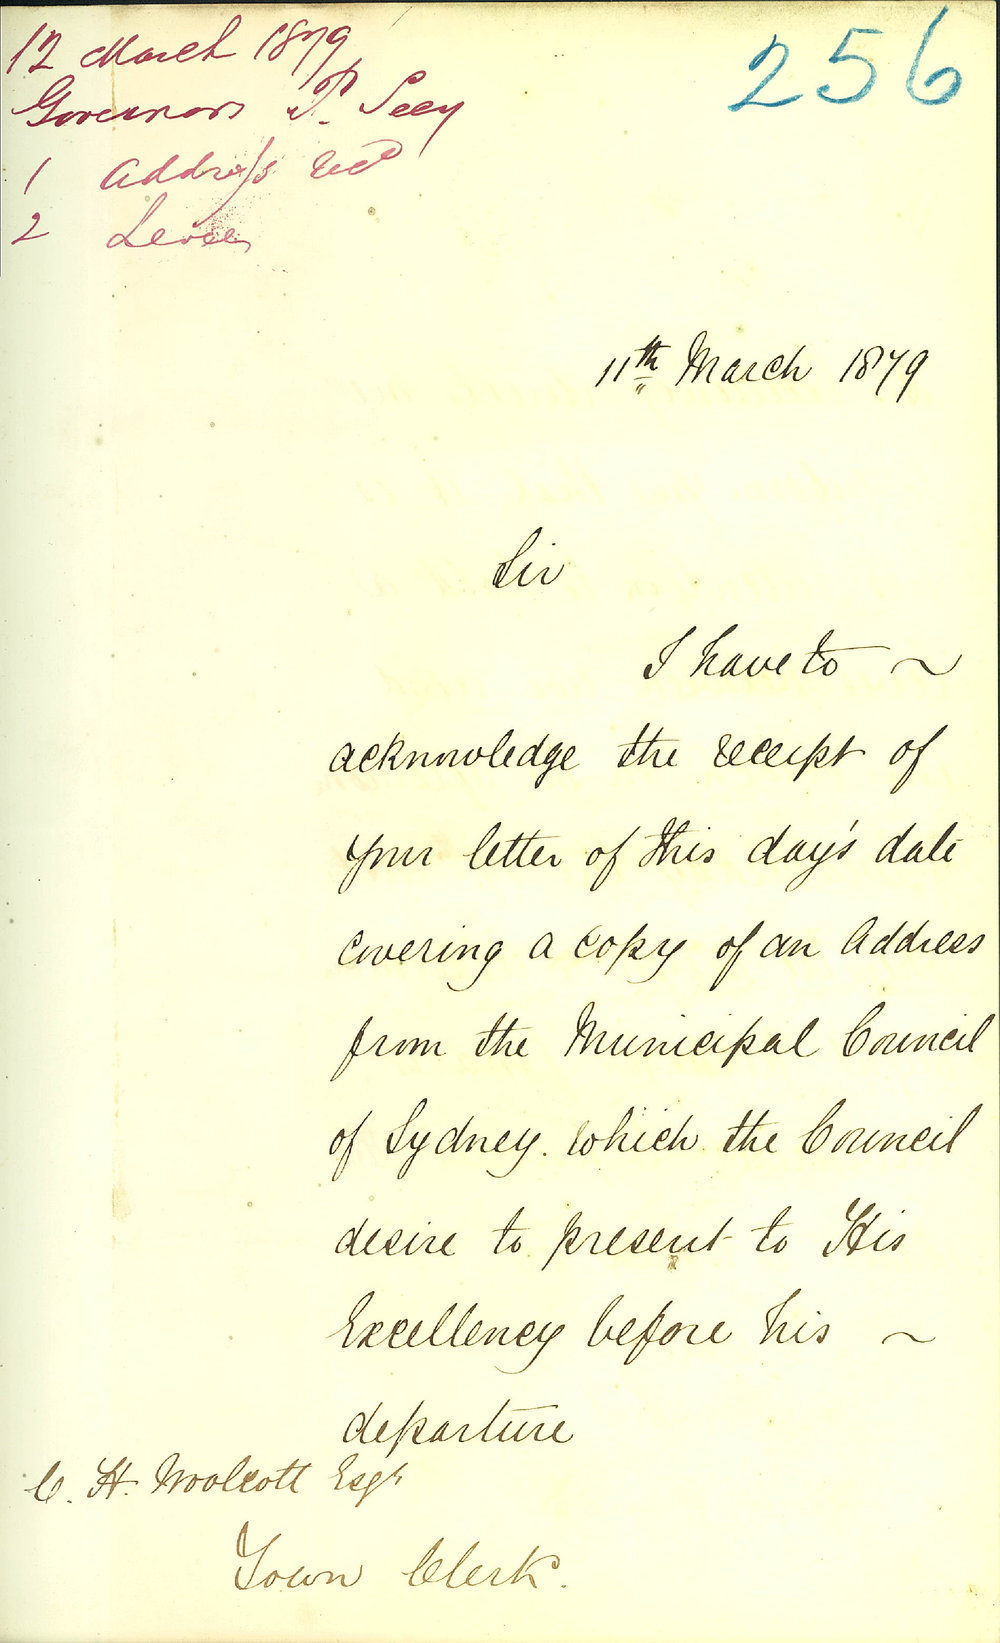 12 March 1879
Governors P. Secy
1 Address recd
2 Levee
256
11th March 1879
Sir
I have to ~
acknowledge the receipt of
your letter of this day's date
covering a copy of an Address
from the Municipal Council
of Sydney. which the Council
desire to present to His
Excellency before his ~
departure
C. H. Woolcott Esqr
Town Clerk.